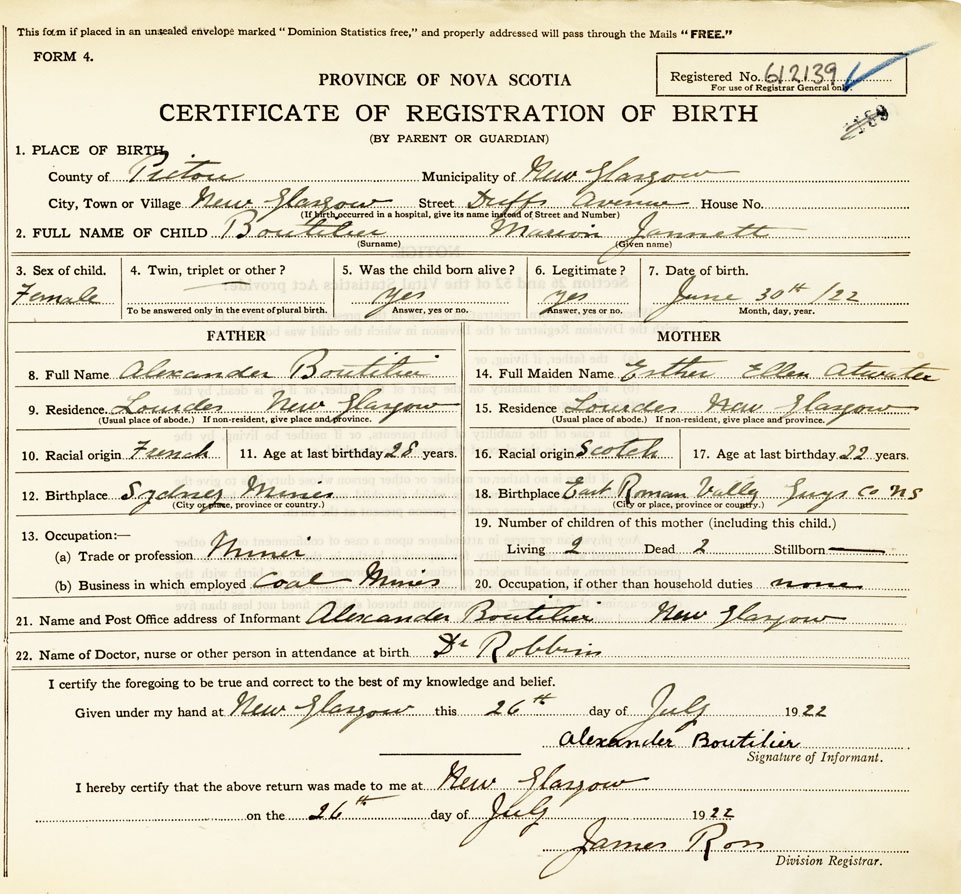 This form if placed in an unsealed envelope marked "Dominion Statistics free," and properly addressed will pass through the Mails "FREE."
FORM 4.
PROVINCE OF NOVA SCOTIA
Registered No. 612139
For use of Registrar General only.
CERTIFICATE OF REGISTRATION OF BIRTH
(BY PARENT OR GUARDIAN)
1. PLACE OF BIRTH
County of Pictou Municipality of New Glasgow
City, Town or Village New Glasgow Street Duffs Avenue House No.
(If birth occurred in a hospital, give its name instead of Street and Number)
2. FULL NAME OF CHILD Boutilier Marion Jannett
(Surname) (Given name)
3. Sex of child. 4. Twin, triplet or other? 5. Was the child born alive? 6. Legitimate? 7. Date of birth.
Female yes yes June 30th /22
To be answered only in the event of plural birth. Answer, yes or no. Answer, yes or no. Month, day, year.
FATHER MOTHER
8. Full Name Alexander Boutilier 14. Full Maiden Name Esther Ellen Atwater
9. Residence Lourdes New Glasgow 15. Residence Lourdes New Glasgow
(Usual place of abode.) If non-resident, give place and province. (Usual place of abode.) If non-resident, give place and province.
10. Racial origin French 11. Age at last birthday 28 years. 16. Racial origin Scotch 17. Age at last birthday 22 years.
12. Birthplace Sydney Mines 18. Birthplace East Roman Vally Guys Co NS
(City or place, province or country.) (City or place, province or country.)
13. Occupation:— 19. Number of children of this mother (including this child.)
(a) Trade or profession Miner Living 2 Dead 2 Stillborn —
(b) Business in which employed Coal Mines 20. Occupation, if other than household duties none
21. Name and Post Office address of Informant Alexander Boutilier New Glasgow
22. Name of Doctor, nurse or other person in attendance at birth Dr Robbins
I certify the foregoing to be true and correct to the best of my knowledge and belief.
Given under my hand at New Glasgow this 26th day of July 1922
Alexander Boutilier
Signature of Informant.
I hereby certify that the above return was made to me at New Glasgow
on the 26th day of July 1922
James Ross
Division Registrar.